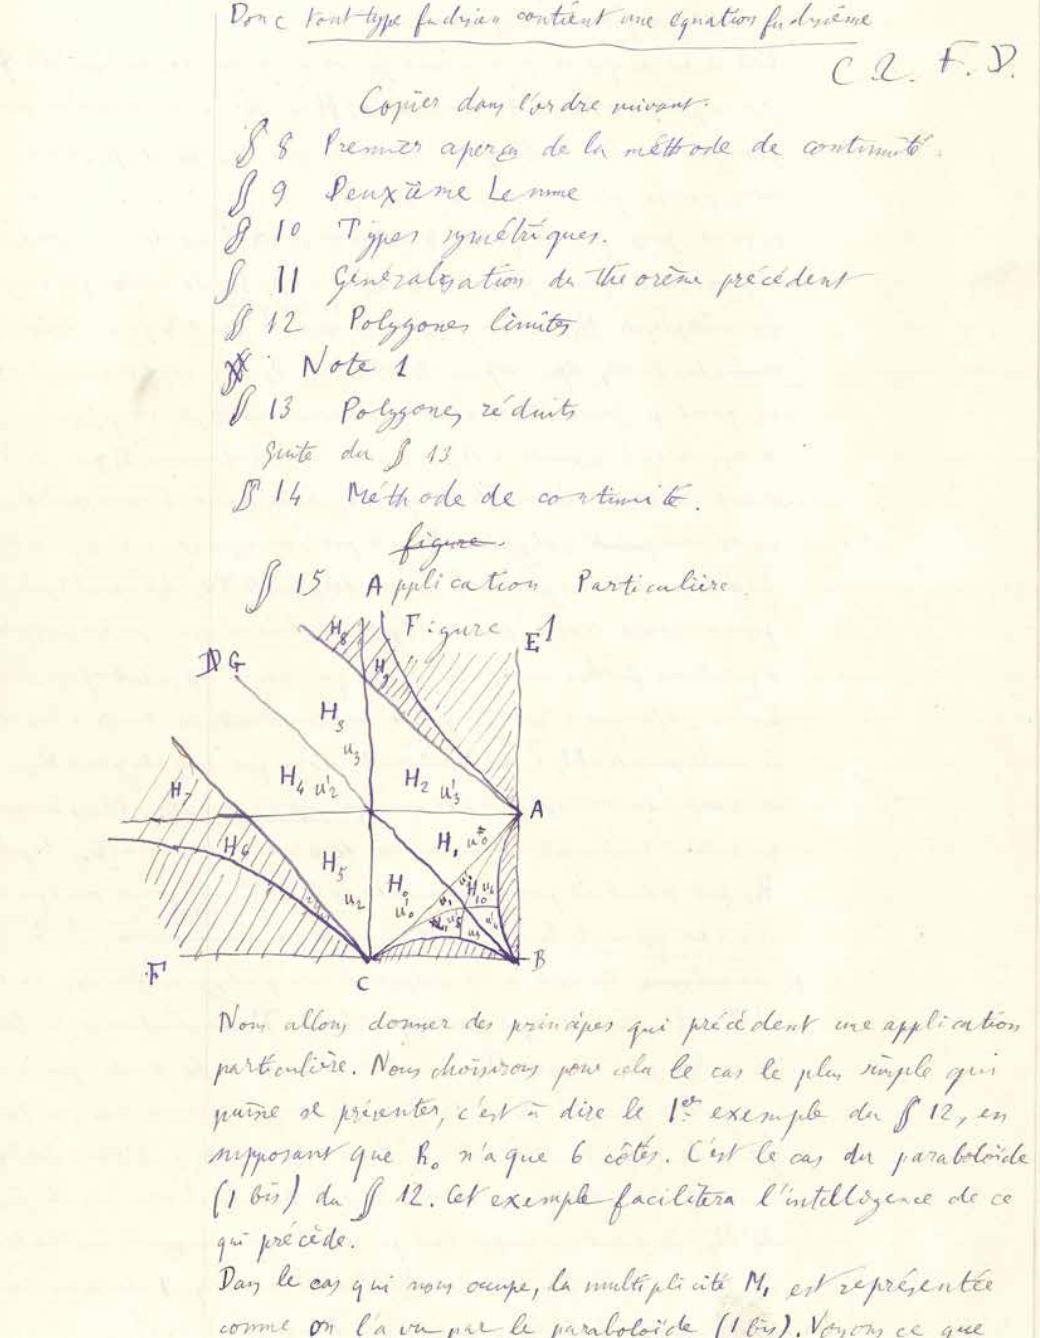 Donc tout type fuchsien contient une équation fuchsienne
C. Q. F. D.
Copier dans l'ordre suivant.
§ 8 Premier aperçu de la méthode de continuité.
§ 9 Deuxième Lemme
§ 10 Types symétriques.
§ 11 Généralisation du théorème précédent
§ 12 Polygones limites
Note 1
§ 13 Polygones réduits
Suite du § 13
§ 14 Méthode de continuité.
figure.
§ 15 Application Particulière
Figure 1
H8
H9
E
D G
H3
u3
H4 u'2
H2 u'3
H7
A
H6
H5
u2
H1
H0
u'0
H10
B
F
C
Nous allons donner des principes qui précèdent une application
particulière. Nous choisirons pour cela le cas le plus simple qui
puisse se présenter, c'est à dire le 1er exemple du § 12, en
supposant que R0 n'a que 6 côtés. C'est le cas du paraboloïde
(1 bis) du § 12. Cet exemple facilitera l'intelligence de ce
qui précède.
Dans le cas qui nous occupe, la multiplicité M1 est représentée
comme on l'a vu par le paraboloïde (1 bis). Voyons ce que